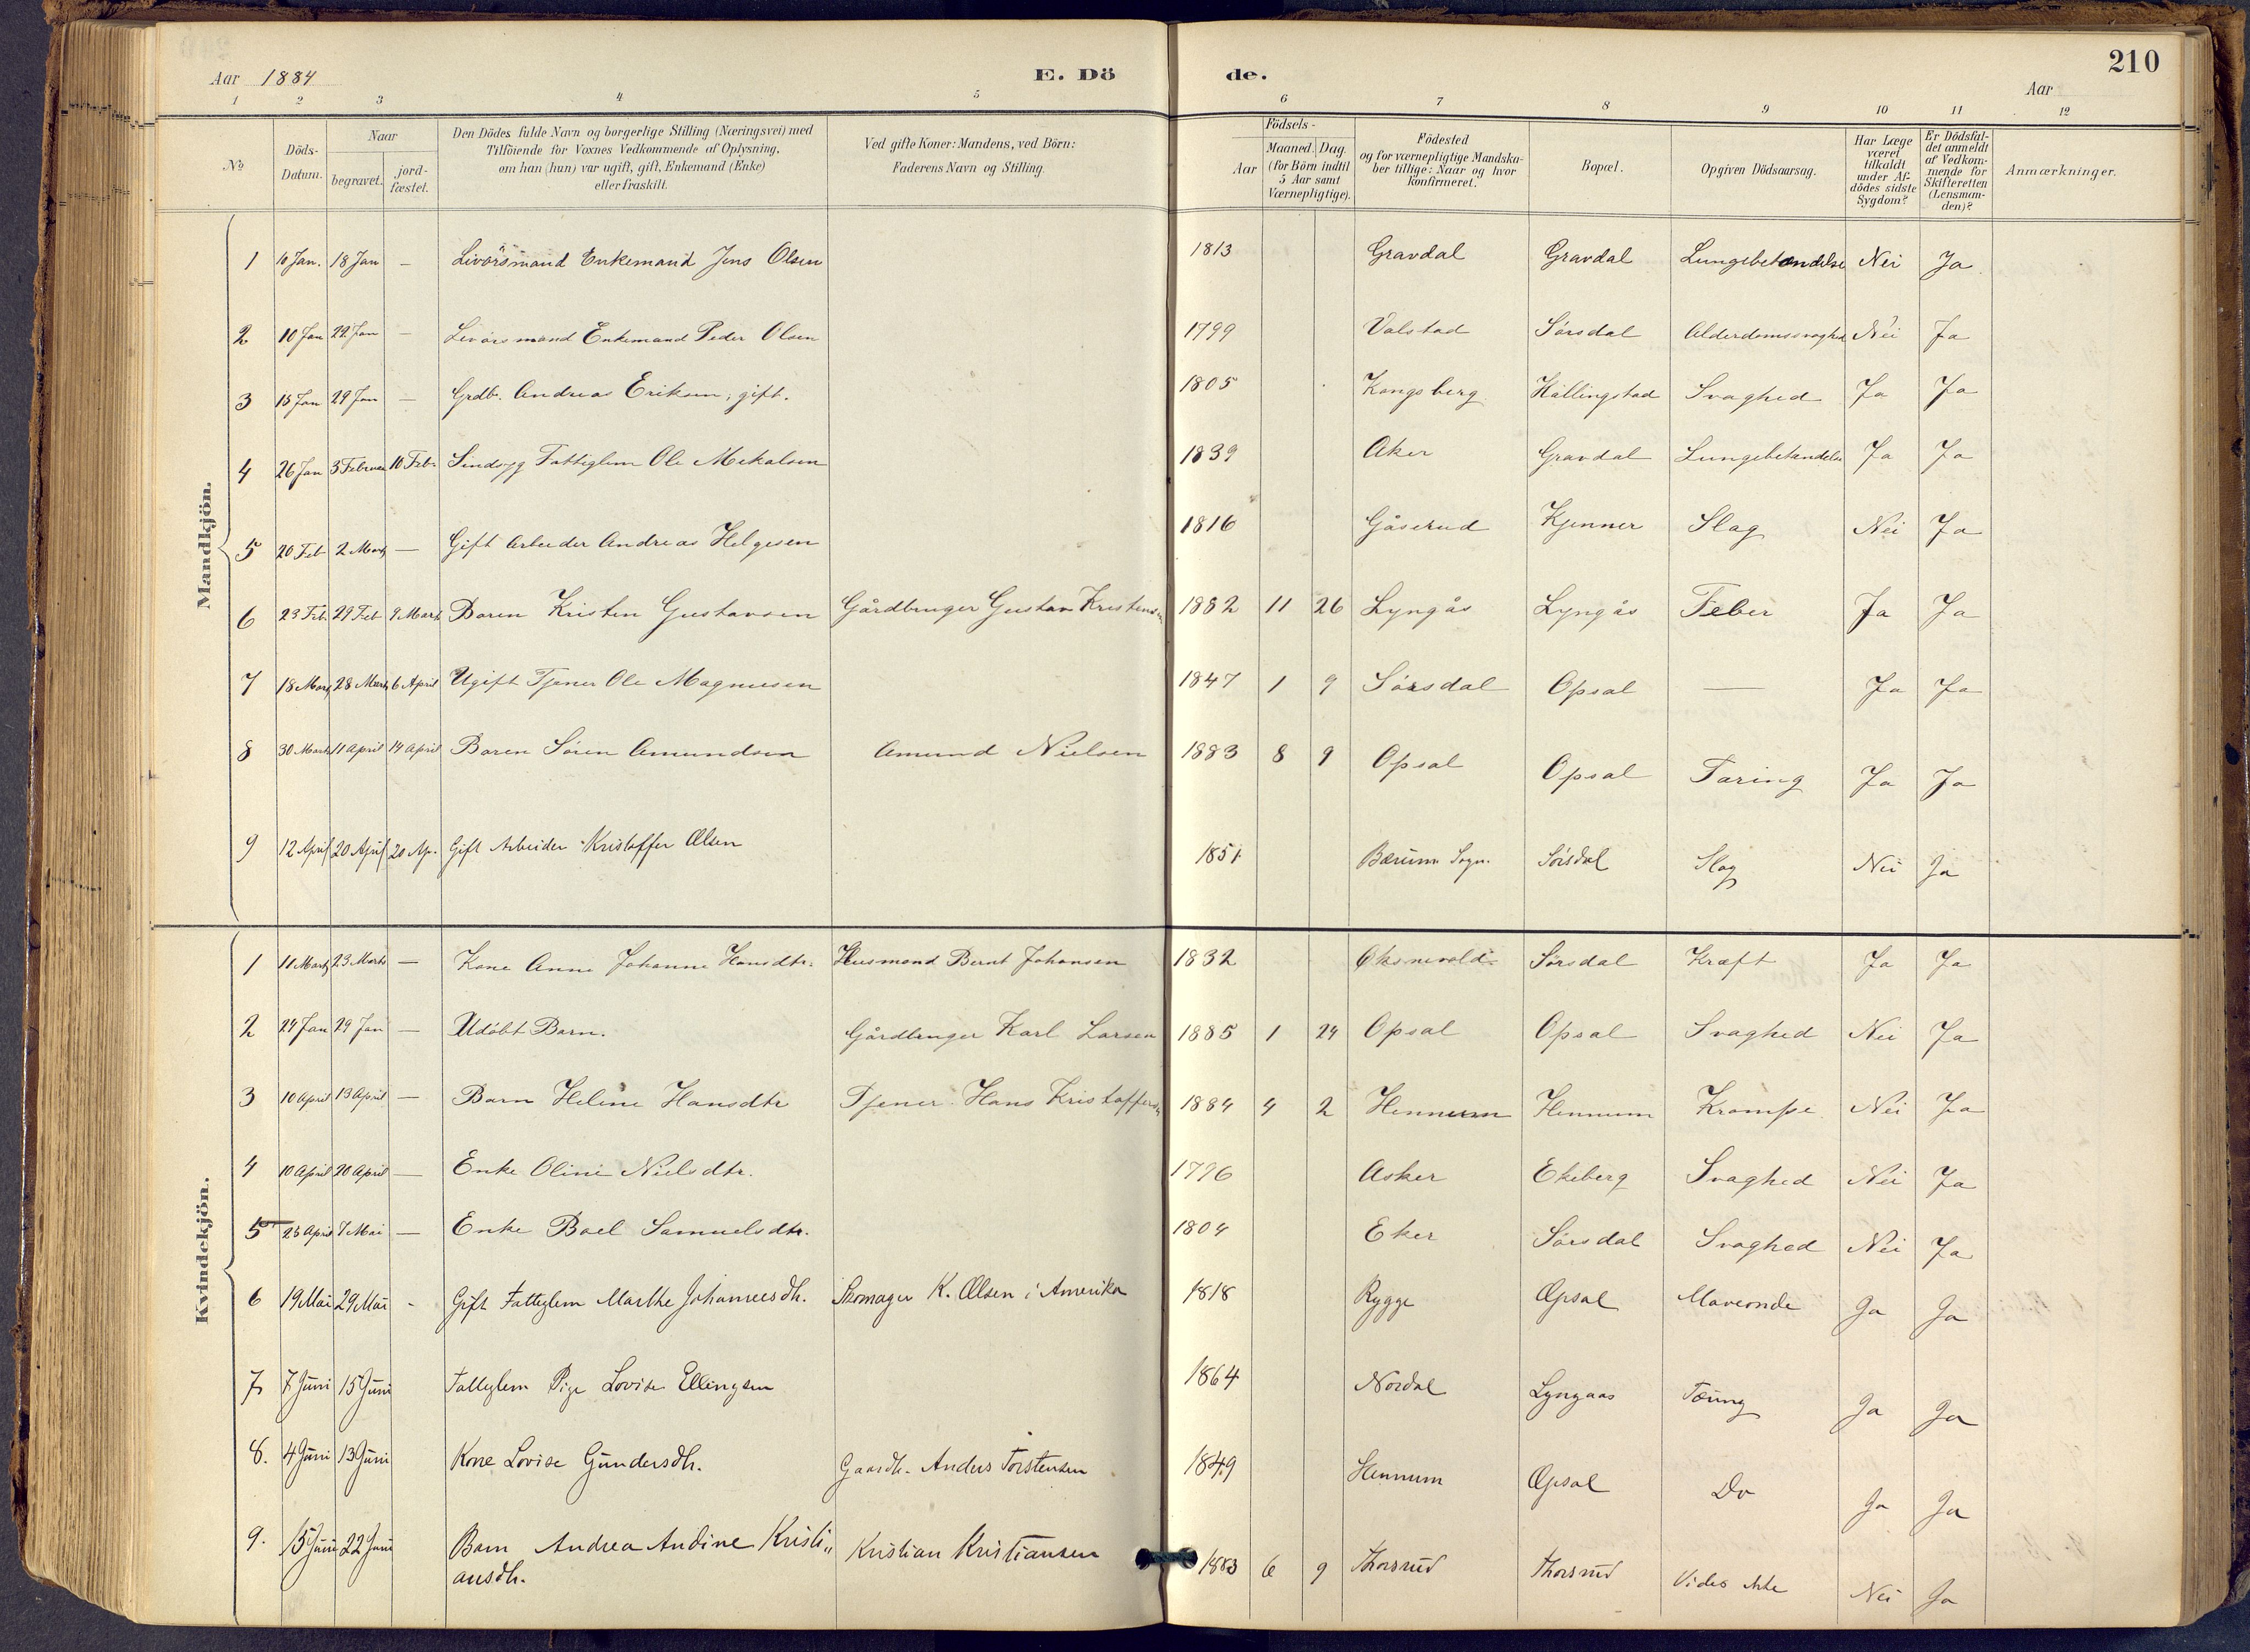 Aar 1884 E. Dö de. Aar 210
1 2 3 4 5 6 7 8 9 10 11 12
No
Döds-Datum.
Naar
begravet.
jord-fæstet.
Den Dödes fulde Navn og borgerlige Stilling (Næringsvei) med
Tilföiende for Voxnes Vedkommende af Oplysning,
om han (hun) var ugift, gift, Enkemand (Enke)
eller fraskilt.
Ved gifte Koner: Mandens, ved Börn:
Faderens Navn og Stilling.
Födsels-
Aar
Maaned. Dag.
(for Börn indtil
5 Aar samt
Værnepligtige).
Födested
og for værnepligtige Mandska-
ber tillige: Naar og hvor
konfirmeret.
Bopæl.
Opgiven Dödsaarsag.
Har Læge
været
tilkaldt
under Af-
dödes sidste
Sygdom?
Er Dödsfal-
det anmeldt
af Vedkom-
mende for
Skifteretten
(Lensman-
den)?
Anmærkninger.
Mandkjön.
1 10 Jan. 18 Jan — Livörsmand Enkemand Jens Olsen 1813 Gravdal Gravdal Lungebetændelse Nei Ja
2 10 Jan 22 Jan — Livörsmand Enkemand Peder Olsen 1799 Valstad Sörsdal Alderdomssvaghed Nei Ja
3 15 Jan 29 Jan — Grdb. Andreas Eriksen, gift. 1805 Kongsberg Hållingstad Svaghed Ja Ja
4 26 Jan 3 Februar 10 Febr. Sindsyg Fattiglem Ole Mekalsen 1839 Aker Gravdal Lungebetændelse Ja Ja
5 20 Feb 2 Marts — Gift Arbeider Andreas Helgesen 1816 Gåserud Kjenner Slag Nei Ja
6 23 Feb. 29 Feb 9 Marts Baren Kristen Gustavsen Gårdbruger Gustav Kristens. 1882 11 26 Lyngås Lyngås Feber Ja Ja
7 18 Marts 28 Marts 6 April Ugift Tjener Ole Magnusen 1847 1 9 Sörsdal Opsal — Ja Ja
8 30 Marts 11 April 14 April Baren Sören Amundsen Amund Nielsen 1883 8 9 Opsal Opsal Tæring Ja Ja
9 12 April 20 April 20 Ap. Gift Arbeider Kristoffer Olsen 1851 Bærums Sogn. Sörsdal Slag Nei Ja
Kvindekjön.
1 11 Marts 23 Marts — Kone Anne Johanne Hansdtr. Husmand Bernt Johansen 1832 Sörsdal Kræft Ja Ja
2 24 Jan 29 Jan — Udöbt Barn. Gårdbruger Karl Larsen 1885 1 24 Opsal Opsal Svaghed Nei Ja
3 10 April 13 April — Barn Heline Hansdtr Tjener Hans Kristoffersen 1884 4 2 Hennum Hennum Krampe Nei Ja
4 10 April 20 April — Enke Oline Nielsdtr. 1796 Asker Ekeberg Svaghed Nei Ja
5 25 April 7 Mai — Enke Boel Samuelsdtr. 1804 Eker Sörsdal Svaghed Nei Ja
6 19 Mai 29 Mai - Gift Fattiglem Marthe Johannesdtr. Skomager K. Olsen i Amerika 1818 Rygge Opsal Maveonde Ja Ja
7 7 Juni 15 Juni Fattiglem Pige Lovise Ellingsen 1864 Nordal Lyngaas Tæring Ja Ja
8. 4 Juni 13 Juni Kone Lovise Gundersdtr. Gaardb. Anders Torstensen 1849 Hennum Opsal Do Ja Ja
9. 15 Juni 22 Juni Barn Andrea Andine Kristi„ Kristian Kristiansen 1883 6 9 Thorsrud Thorsrud Vides ikke Nei Ja
ansdtr.